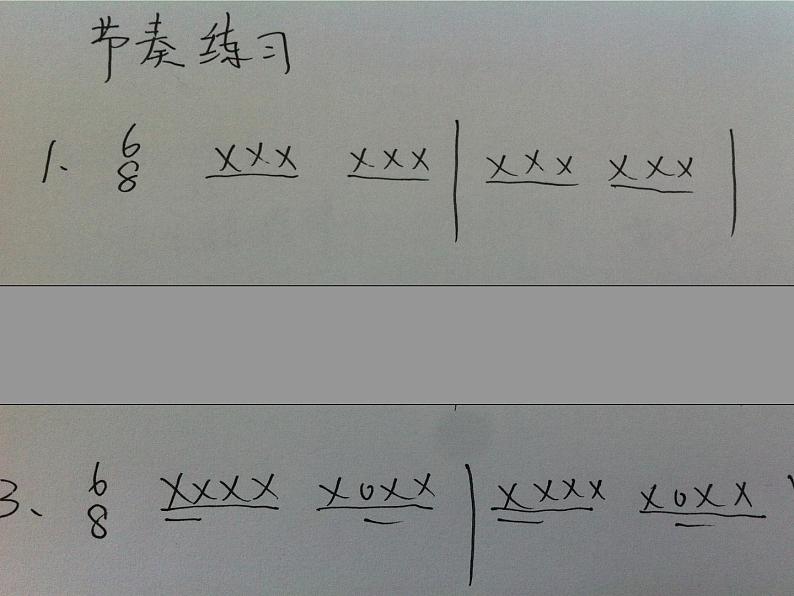 节奏练习
1、 6/8 XXX XXX | XXX XXX |
3、 6/8 XXXX X0XX | XXXX X0XX